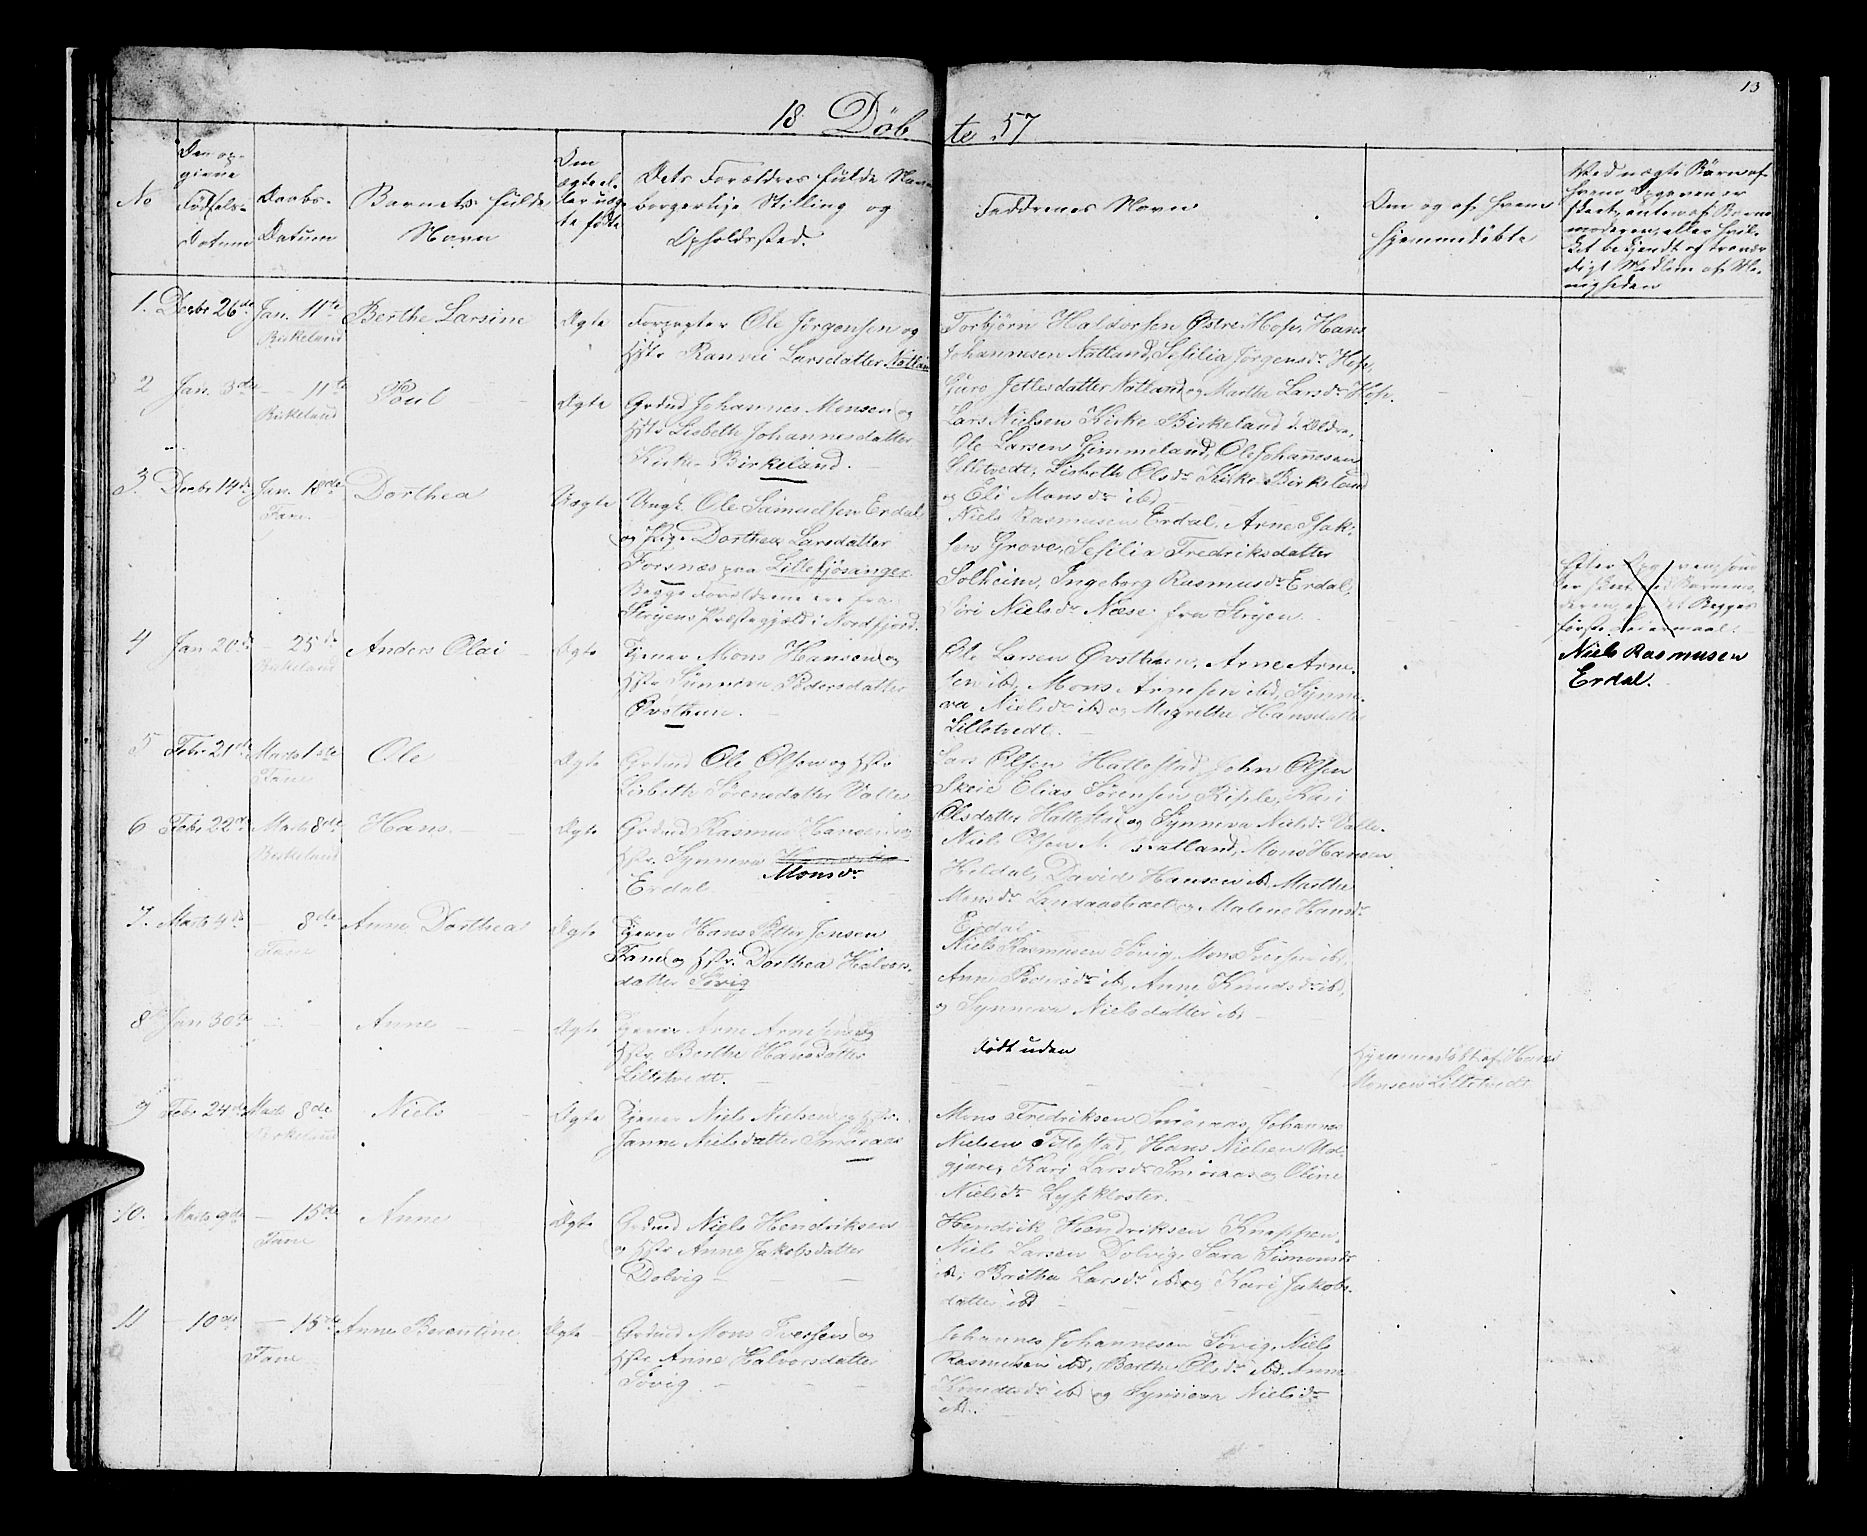 13
18 Döb
te 57
No
Den op-
givne
Födsels-
Datum
Daabs-
Datum
Barnets fulde
Navn
Om
ægte el-
ler uæg-
te födte
Dets Forældres fulde Navn
borgerlige Stilling og
Opholdssted.
Faddrenes Navn
Om og af hvem
hjemmedöbte
Ved uægte Börn af
hvem Opgaven er
skeet, enten af Barne-
moderen, eller hvil-
ket bekjendt og trovær-
digt Medlem af Me-
nigheden
1. Decbr 26de Jan. 11te Berthe Larsine Ægte Forpagter Ole Jörgensen og
Birkeland
Hstr Ranvei Larsdatter Natland
Torbjörn Haldorsen Østre Hop, Hans
Johannesen Natland, Sesilia Jörgensdr Hop,
Guro Jetlesdatter Natland og Marthe Larsdr Hop.
2 Jan. 3de — 11te Poul Ægte Grdmd Johannes Monsen og
Birkeland
Hstr Lisbeth Johannesdatter
Kirke Birkeland.
Lars Nielsen Kirke Birkeland d. Ældre,
Ole Larsen Gimmeland, Ole Johannesen
Lillstvedt, Lisbeth Olsdr Kirke Birkeland
og Eli Monsdr ibd
3. Decbr 14de Jan. 18de Dorthea Uægte Ungk. Ole Samuelsen Erdal
Fane.
og Pige Dorthea Larsdatter
Forsnæs paa Lille fjösanger.
Begge Forældrene ere fra
Stryens Præstegjæld i Nordfjord.
Niels Rasmusen Erdal, Arne Isak-
sen Grove, Sesilia Fredriksdatter
Solheim, Ingeborg Rasmusdr Erdal,
Siri Nielsdr Næse fra Stryen
Niels Rasmusen
Erdal.
4 Jan 20de — 25de Anders Olai Ægte Tjener Mons Hansen og
Birkeland
Hstr Sunneva Pedersdatter
Øvsthun.
Ole Larsen Øvsthun, Arne Arne-
sen ibd, Mons Arnesen ibd, Synne-
va Nielsdr ibd og Magrethe Hansdatter
Lillstvedt.
5 Febr 21de Marts 1ste Ole Ægte Grdmd Ole Olsen og Hstr
Fane
Lisbeth Sörensdatter Valle
Lars Olsen Hattestad, John Olsen
Skeie Elias Sörensen Riple, Kari
Olsdatter Hattestad og Synneva Nielsdr Valle.
6 Febr 22de Marts 8de Hans Ægte Grdmd Rasmus Hansen og
Birkeland
Hstr. Synneva
Monsdr
Erdal
Niels Olsen N. Natland, Mons Hansen
Heldal, David Hansen ibd, Marthe
Monsdr Landaastræet og Malene Hansdr
Erdal
7. Marts 4de — 8de Anne Dorthea Ægte Tjener Hans Petter Jensen
Fane
Fane og Hstr. Dorthea Halvors-
datter Sövig
Niels Rasmusen Sövig, Mons Iversen ibd,
Anne Pedersdr ibd, Anne Knudsdr ibd,
og Synneva Nielsdatter ibd
8 Jan 30te — Anne Ægte Tjener Arne Arnesen og
Hstr. Berthe Hansdatter
Lillstvedt.
Födt uden
Hjemmedöbt af Hans
Monsen Lillstvedt
9 Febr 24de Marts 8de Niels Ægte Tjener Niels Nielsen og Hstr.
Birkeland
Janne Nielsdatter Smöraas
Mons Fredriksen Smöraas, Johannes
Nielsen Titlestad, Hans Nielsen Ud-
gjære, Kari Larsdr Smöraas og Oline
Nielsdr Lysekloster.
10. Marts 9de — 15de Anne Ægte Grdmd Niels Hendriksen
Fane
og Hstr Anne Jakobsdatter
Dolvig
Hendrik Hendriksen Knappen,
Niels Larsen Dolvig, Sara Simonsdr
ibd, Brithe Larsdr ibd og Kari Jakobs-
datter ibd
11 — 10de — 15de Anne Berentine Ægte Grdmd Mons Iversen og
Fane
Hstr Anne Halvorsdatter
Sövig
Johannes Johannesen Sövig, Niels
Rasmusen ibd, Berthe Olsdr ibd, Anne
Knudsdr ibd og Synneva Nielsdr
ibd.